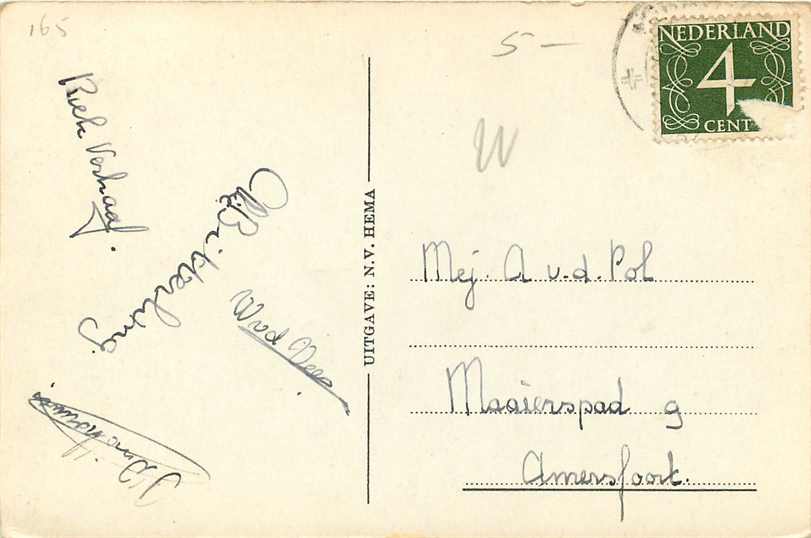 165
5 —
NEDERLAND
4
CENT
W
Riek Verhaaf.
Bikkerling
W v d
UITGAVE: N.V. HEMA
Mej. A v.d. Pol
Maaierspad 9
Amersfoort.